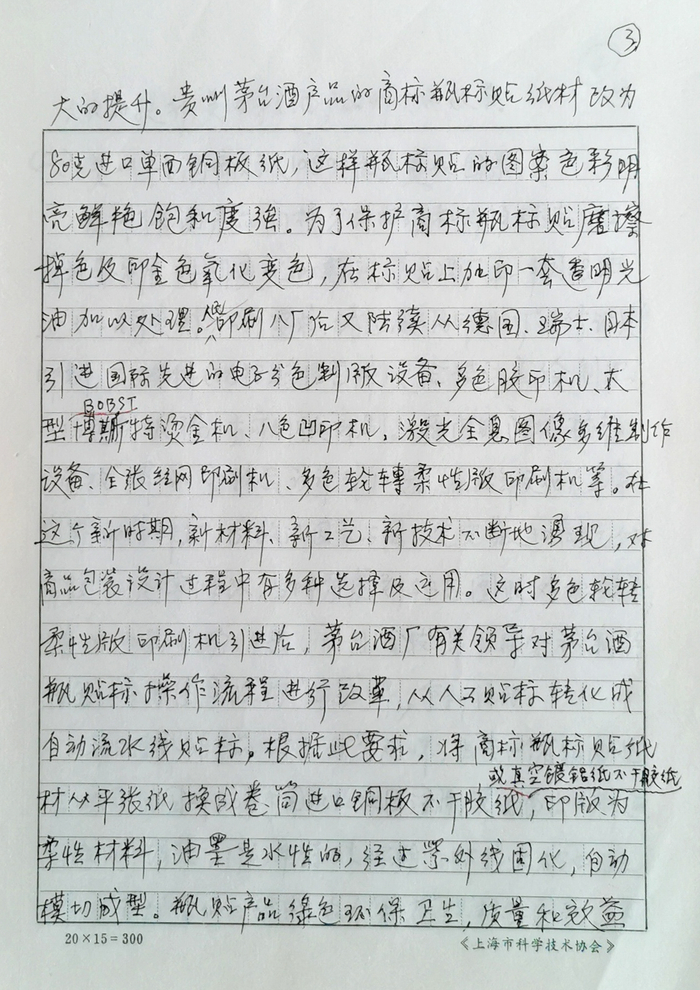 ③
大的提升。贵州茅台酒产品的商标瓶标贴纸材改为
80克进口单面铜板纸，这样瓶标贴的图案色彩明
亮鲜艳饱和度强。为了保护商标瓶标贴磨擦
掉色及印金色氧化变色，在标贴上加印一套透明光
油加以处理。印刷八厂后又陆续从德国、瑞士、日本
引进国际先进的电子分色制版设备、多色胶印机、大
BOBST
型博斯特烫金机、八色凹印机，激光全息图像多维制作
设备、全张丝网印刷机、多色轮转柔性版印刷机等。在
这个新时期，新材料、新工艺、新技术不断地涌现，对
商品包装设计过程中有多种选择及应用。这时多色轮转
柔性版印刷机引进后，茅台酒厂有关领导对茅台酒
瓶贴标操作流程进行改革，从人工贴标转化成
自动流水线贴标。根据此要求，将商标瓶标贴纸
或真空镀铝纸不干胶纸
材从平张纸换成卷筒进口铜板不干胶纸，印版为
柔性材料，油墨是水性的，经过紫外线固化，自动
模切成型。瓶贴产品绿色环保卫生，质量和效益
20×15=300
《上海市科学技术协会》